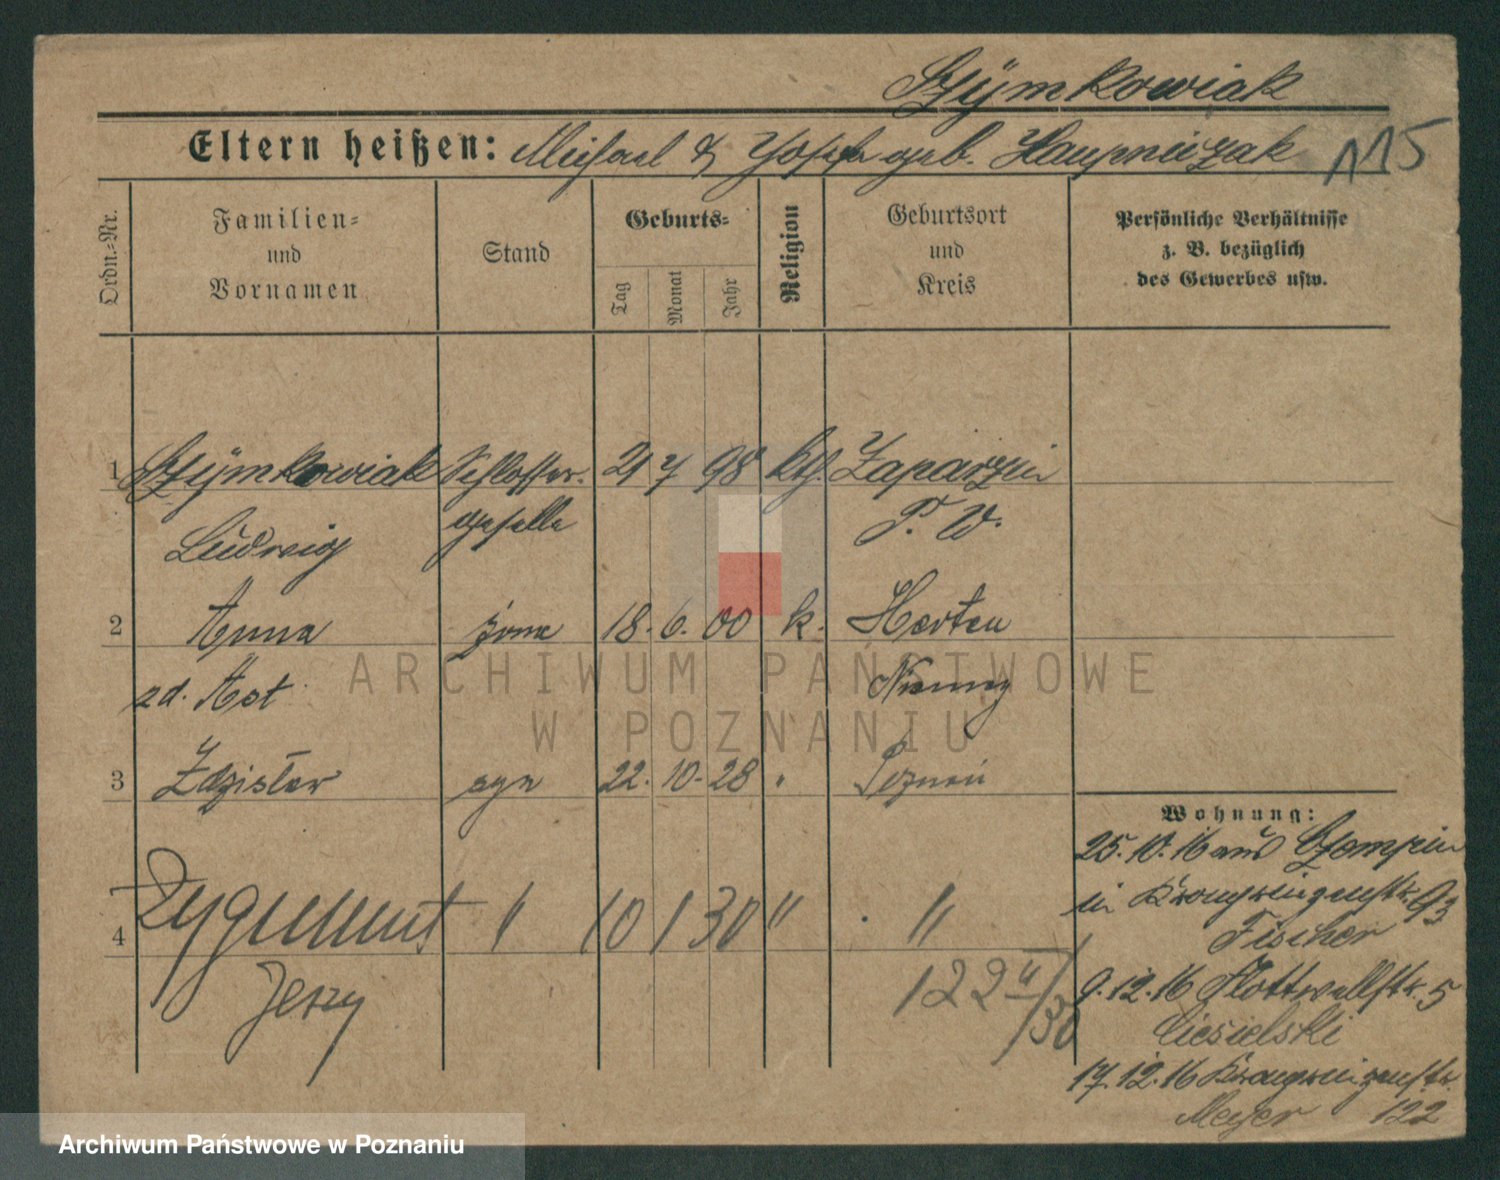 Szÿmkowiak
Eltern heißen: Michael & Josefa geb.
115
Ordn.-Nr.
Familien-
und
Vornamen
Stand
Geburts-
Tag
Monat
Jahr
Religion
Geburtsort
und
Kreis
Persönliche Verhältnisse
z. B. bezüglich
des Gewerbes usw.
1 Szÿmkowiak Schlosser- 21 7 98 kth.
Ludwig geselle P. W.
2 Anna żona 18. 6. 00 k. Herten
zd. Niemcy
3 Zdzisław syn 22. 10. 28 " Poznań
4 Zygmunt " 10 1 30 " "
Jerzy
122 II/30
Wohnung:
25. 10. 16 aus Czempin
in Kronprinzenstr. 93
Fischer
9. 12. 16 Flottwellstr. 5
Ciesielski
17. 12. 16 Kronprinzenstr.
Meyer 122
ARCHIWUM PAŃSTWOWE
W POZNANIU
Archiwum Państwowe w Poznaniu